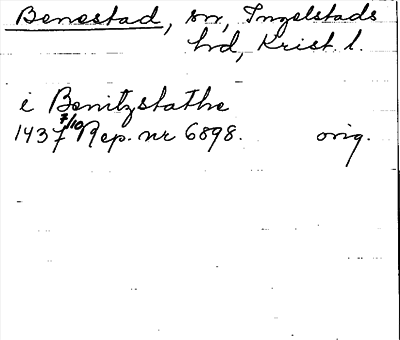 Benestad, sn, Ingelstads
hd, Krist. l.
i Benitzstathe
1437 7/10 Rep. nr 6898. orig.